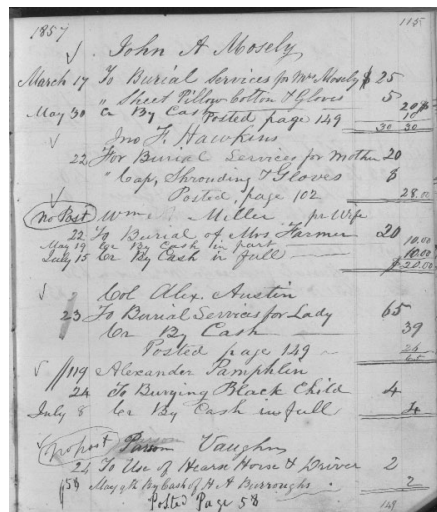 1857 115
John A Mosely
March 17 To Burial Services for Mrs Mosely $ 25
" Sheet Pillow Cotton & Gloves 5
May 30 Cr By Cash 20
Posted page 149 10
30 30
Jno F. Hawkins
22 For Burial Services for Mother 20
" Cap, Shrouding & Gloves 8
Posted, page 102 28.00
no Post Wm Miller pr Wife
22 To Burial of Mrs Farmer 20
May 19 Cr By Cash in part 10.00
July 15 Cr By Cash in full 10.00
$20.00
Col Alex. Austin
23 To Burial Services for Lady 65
Cr By Cash 39
Posted page 149 26
119 Alexander Pamphlin
24 To Burying Black Child 4
July 8 Cr By Cash in full 4
no post Parson Vaughn
24 To Use of Hearse Horse & Driver 2
p58 May 9th By Cash of H A Burroughs 2
Posted Page 58 149